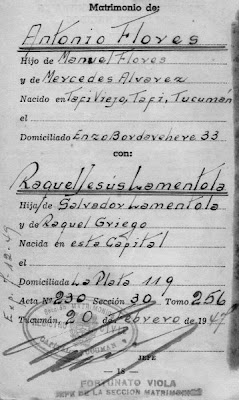 Matrimonio de:
Antonio Flores
Hijo de Manuel Flores
y de Mercedes Alvarez
Nacido en Tafi Viejo, Tafi, Tucumán
el
Domiciliado Enzo Bordavehere 33
con:
Raquel Jesús Lamentola
Hija de Salvador Lamentola
y de Raquel Griego
Nacida en esta Capital
el
Domiciliada La Plata 119
Acta Nº 230 Sección 30 Tomo 256
Tucumán, 20 de Febrero de 1947
JEFE
— 18 —
FORTUNATO VIOLA
JEFE DE LA SECCION MATRIMONIOS